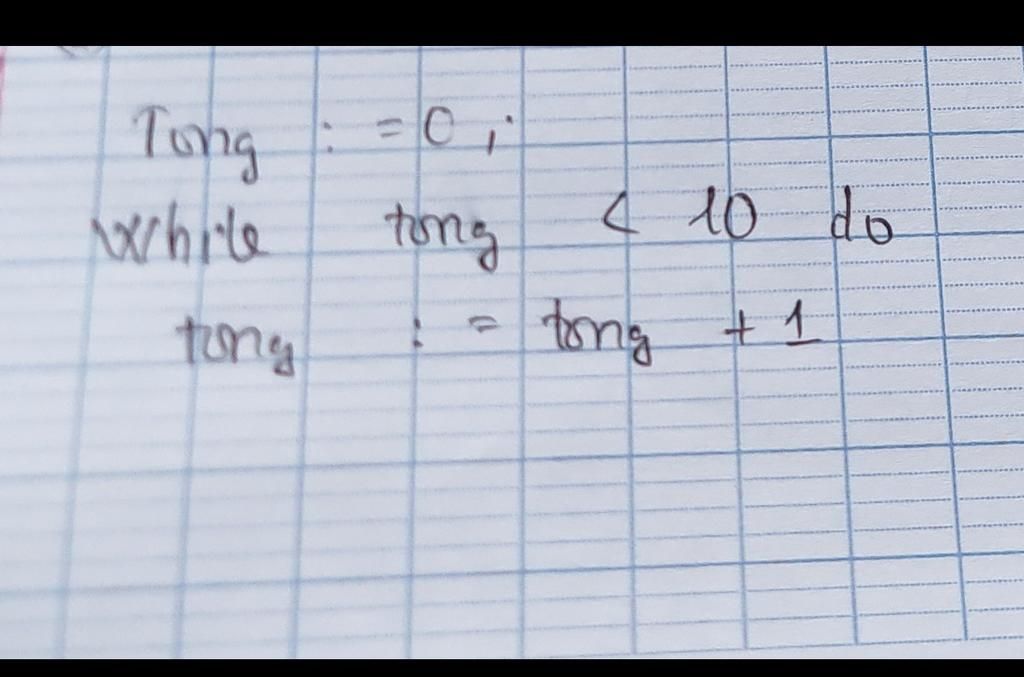 Tong := 0;
While tong < 10 do
tong := tong + 1